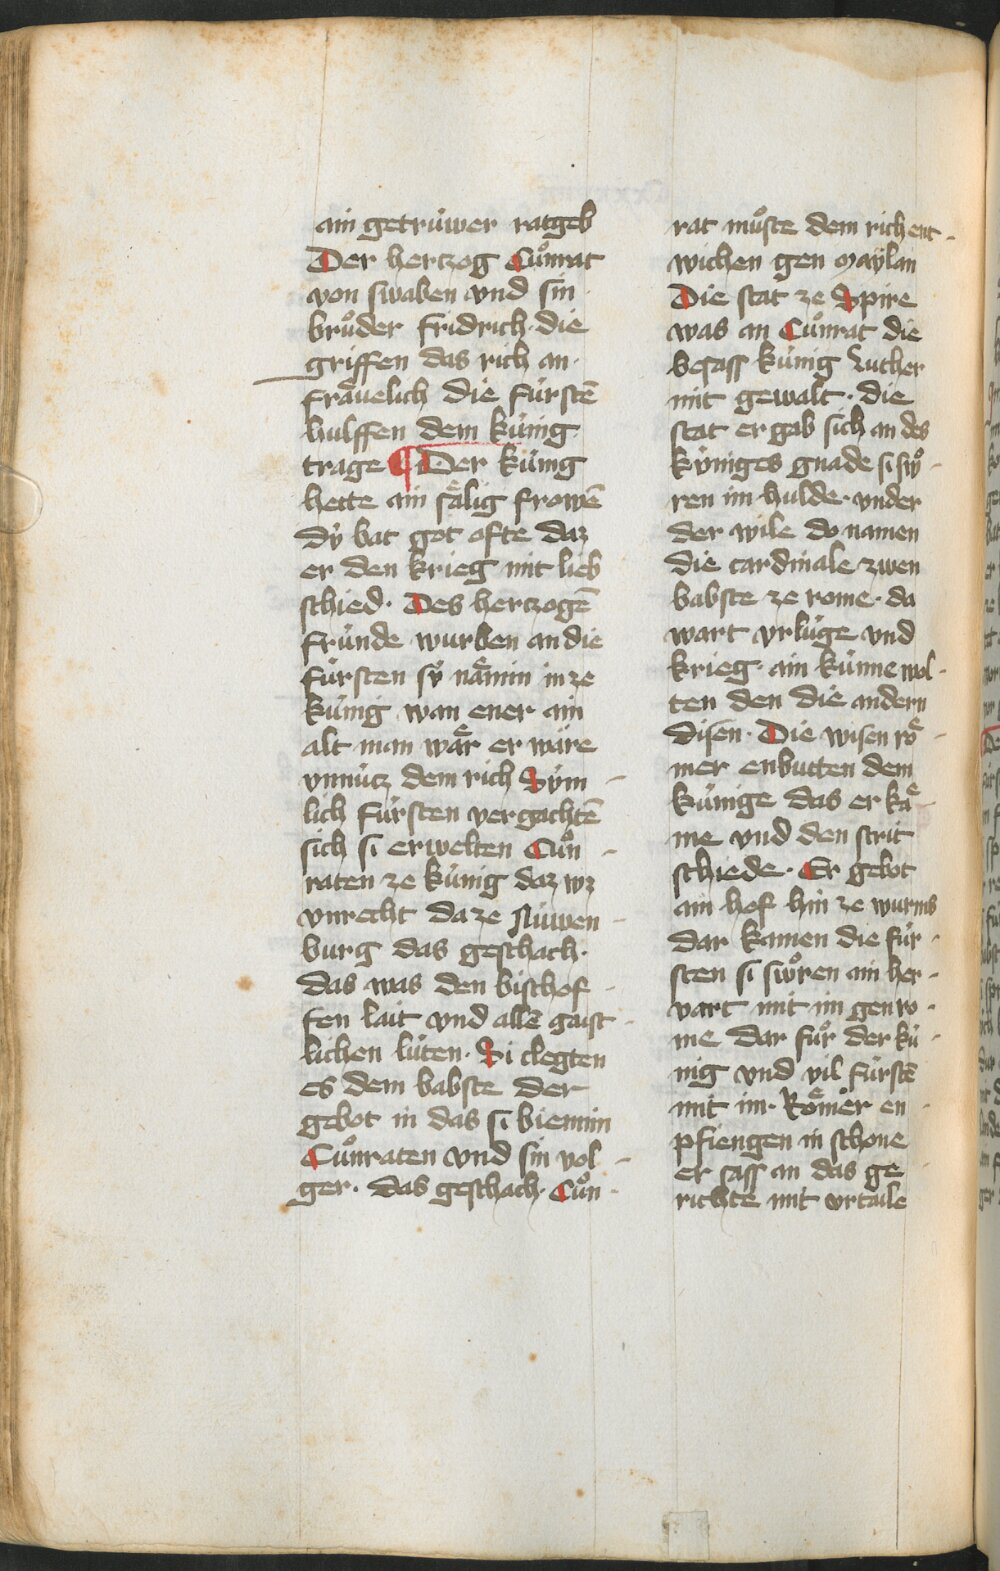 ain getrüwer ratgeb
Der hertzog Cuͦnrat
von swaben vnd sin
bruͦder fridrich · die
griffen das rich an ·
fraͤuelich die fürstē
hulffen dem künig
trage ¶ Der künig
hette ain saͤlig frowē
dÿ bat got ofte daz
er den krieg mit lieb
schied · Des hertzogē
fründe wurben an die
fürsten sÿ naͤmin in ze
künig wan ener ain
alt man waͤr er wäre
vnnütz dem rich Süm
lich fürsten vergachtē
sich si erwelten Cuͦn
raten ze künig daz wz
vnrecht da ze Nüwen
burg das geschach ·
das was den bischof
fen lait vnd allē gaist
lichen lüten · Si clegten
es dem babste der
gebot in das si biemin
Cuͦnraten vnd sin vol
ger · das geschach · Cuͦn
rat muͦste dem rich ent
wichen gen Maÿlan
Die stat ze Spire
was an Cuͦnrat die
besass künig Luther
mit gewalt · die
stat ergab sich an des
küniges gnade si swuͦ
ren im hulde · vnder
der wile do namen
die cardinale zwen
babste ze rome · da
wart vrlüge vnd
krieg · ain künne wol
ten den die andern
disen · Die wisen roͤ
mer enbutten dem
künige das er kaͤ
me vnd den strit
schiede · Er gebot
ain hof hin ze wurms
dar kamen die für
sten si swoͤren ain her
vart mit im gen ro
me dar fuͦr der kü
nig vnd vil fürstē
mit im · Roͤmer en
pfiengen in schone
er sass an das ge
richte mit vrtaile